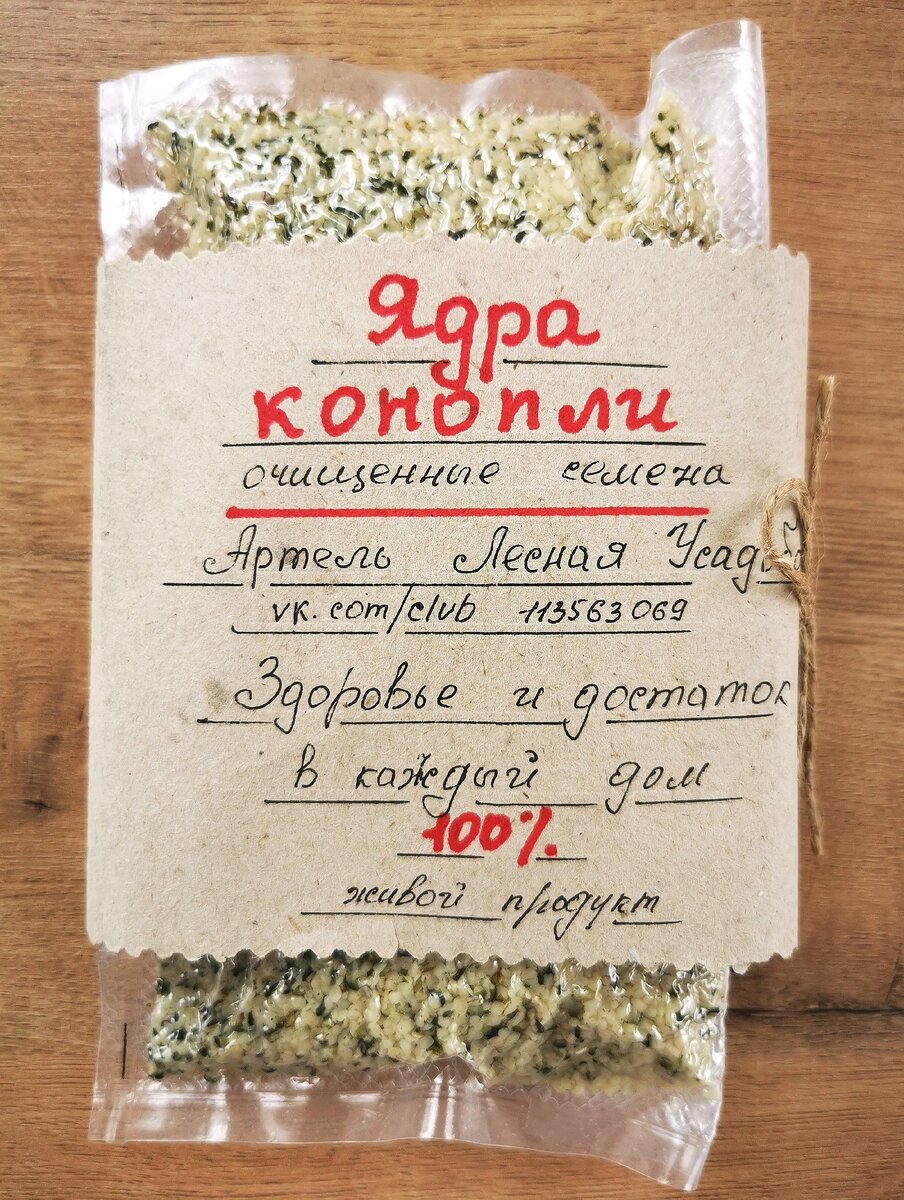 Ядра
конопли
очищенные семена
Артель Лесная Усадьба
vk.com/club 113563069
Здоровье и достаток
в каждый дом
100%
живой продукт